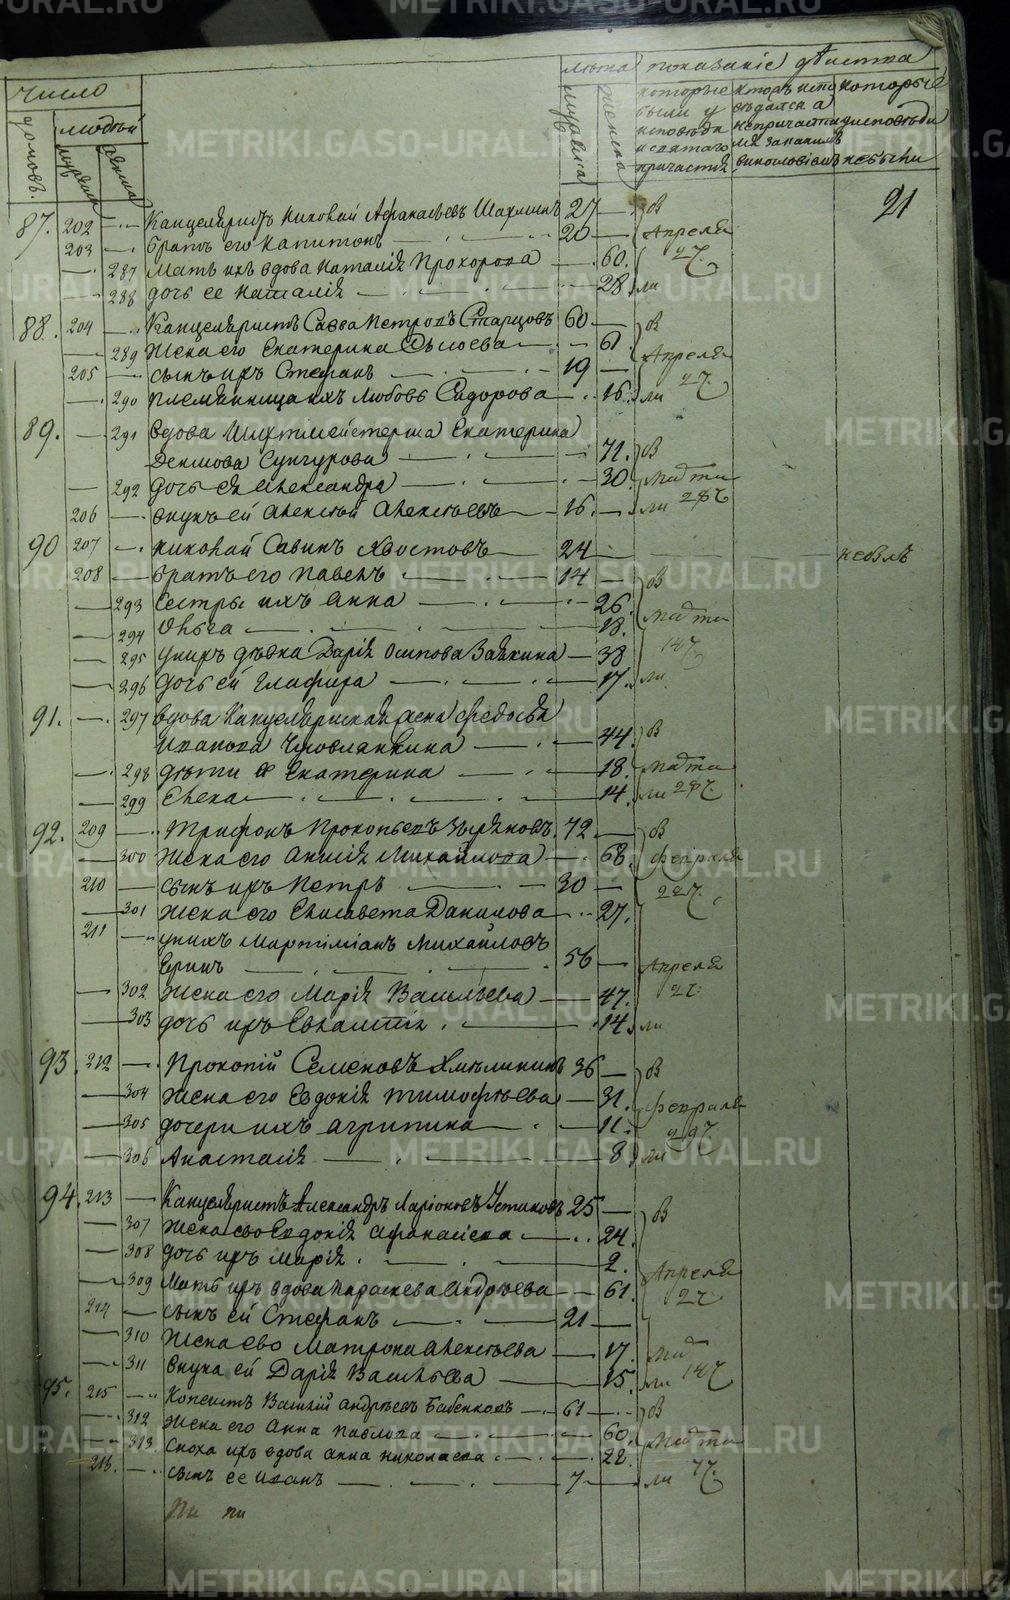 METRIKI.GASO-URAL.RU
число
лѣта показаніе дѣйства
домовъ. людей мужска женска которые были у исповѣди и святаго причастія
которые исповѣдался а непричастился
которые у исповѣди небыли
мужска женска
21
87. 202 Канцеляристъ Николай Афанасьевъ 27 в
203 братъ его Капитонъ 20 Апреля
287 Мать ихъ вдова Наталія Прохорова 60. 27.
288 дочь ее Наталія 28 ли
88. 204 Канцеляристъ Савва Петровъ Старцовъ 60 в
289 Жена его Екатерина 61 Апреля
205 сынъ ихъ Стефанъ 19 27.
290 племянница ихъ Любовь Сидорова 16. ли
89. 291 вдова Шихтмейстерша Екатерина
Сунгурова 71. в
292 дочь ея Александра 30 марта
206 внукъ ей Алексѣй Алексѣевъ 16. ли 28
90 207 Николай Савинъ Хвостовъ 24 небылъ
208 братъ его Павелъ 14 в
293 Сестры ихъ Анна 26. марта
294 Ольга 18. 14
295 унихъ дѣвка Дарія Осипова 38
296 дочь ей Глафира 17. ли
91. 297 вдова Канцелярская жена Федосья
Иванова 44. в
298 дѣти Екатерина 18. марта
299 Елена 14. ли 28
92. 209 Трифонъ Прокопьевъ Зыряновъ 72 в
300 Жена его Михайлова 68. февраля
210 сынъ ихъ Петръ 30 22
301 Жена его Елисавета Данилова 27.
211 унихъ Мартиміанъ Михайловъ
Еринъ 56 Апреля
302 Жена его Марія Васильева 47. 27
303 дочь ихъ Евлампія 14 ли
93 212 Прокопій Семеновъ Хмѣлининъ 36 в
304 Жена его Евдокія Тимофѣева 31. февраля
305 дочери ихъ Агрипина 11. 29
306 Анастасія 8 ли
94. 213 Канцеляристъ Александръ Ларіоновъ Устиновъ 25 в
307 Жена ево Евдокія Афанасіева 24.
308 дочь ихъ Марія 2. Апреля
309 Мать ихъ вдова Параскева Андрѣева 61. 27
214 сынъ ей Стефанъ 21
310 Жена ево Матрона Алексѣева 17.
311 внука ей Дарія Васильева 15 ли 14
95. 215 Копеистъ Василій Андрѣевъ Бабенковъ 61 в
312 Жена его Анна Павлова 60. марта
313. Сноха ихъ вдова Анна Николаева 22. ли 7
216. сынъ ее Иванъ 7